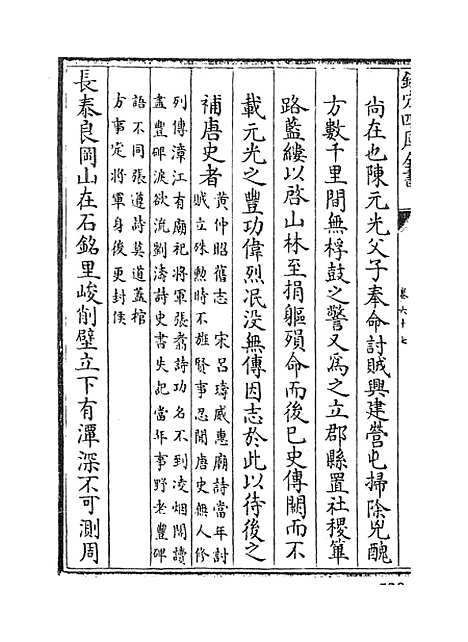 欽定四庫全書
卷六十七
尚在也陳元光父子奉命討賊興建營屯掃除兇醜
方數千里間無桴鼓之警又爲之立郡縣置社稷篳
路藍縷以啓山林至捐軀殞命而後已史傳闕而不
載元光之豐功偉烈冺没無傳因志於此以待後之
補唐史者
黄仲昭舊志 宋吕璹威惠廟詩當年討
賊立殊勲時不旌賢事忍聞唐史無人修
列傳漳江有廟祀將軍張翥詩功名不到凌烟閣讀
盡豐碑淚欲流劉濤詩史書失記當年事野老豐碑
語不同張遵詩莫道蓋棺
方事定將軍身後更封侯
長泰良岡山在石銘里峻削壁立下有潭深不可測周